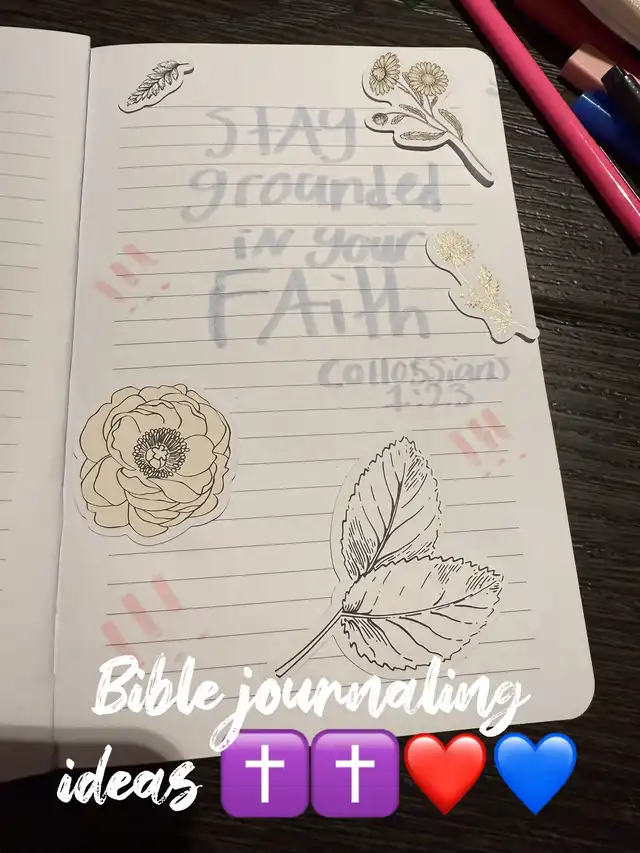 STAY
grounded
in your
FAith
(collossians
1:23
Bible journaling
ideas ✝️✝️❤️💙